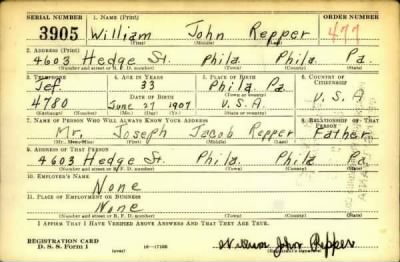 SERIAL NUMBER 1. NAME (Print) ORDER NUMBER
3905 William John Repper 477
(First) (Middle) (Last)
2. ADDRESS (Print)
4603 Hedge St. Phila Phila Pa.
(Number and street or R. F. D. number) (Town) (County) (State)
3. TELEPHONE 4. AGE IN YEARS 5. PLACE OF BIRTH 6. COUNTRY OF CITIZENSHIP
Jef. 33 Phila Pa.
DATE OF BIRTH (Town or county)
4780 June 27 1907 U.S.A U.S.A
(Exchange) (Number) (Mo.) (Day) (Yr.) (State or country)
7. NAME OF PERSON WHO WILL ALWAYS KNOW YOUR ADDRESS 8. RELATIONSHIP OF THAT PERSON
Mr. Joseph Jacob Repper Father
(Mr., Mrs., Miss) (First) (Middle) (Last)
9. ADDRESS OF THAT PERSON
4603 Hedge St. Phila. Phila Pa
(Number and street or R. F. D. number) (Town) (County) (State)
10. EMPLOYER'S NAME
None
11. PLACE OF EMPLOYMENT OR BUSINESS
None
(Number and street or R. F. D. number) (Town) (County) (State)
I AFFIRM THAT I HAVE VERIFIED ABOVE ANSWERS AND THAT THEY ARE TRUE.
REGISTRATION CARD
D. S. S. Form 1 (over) William John Repper